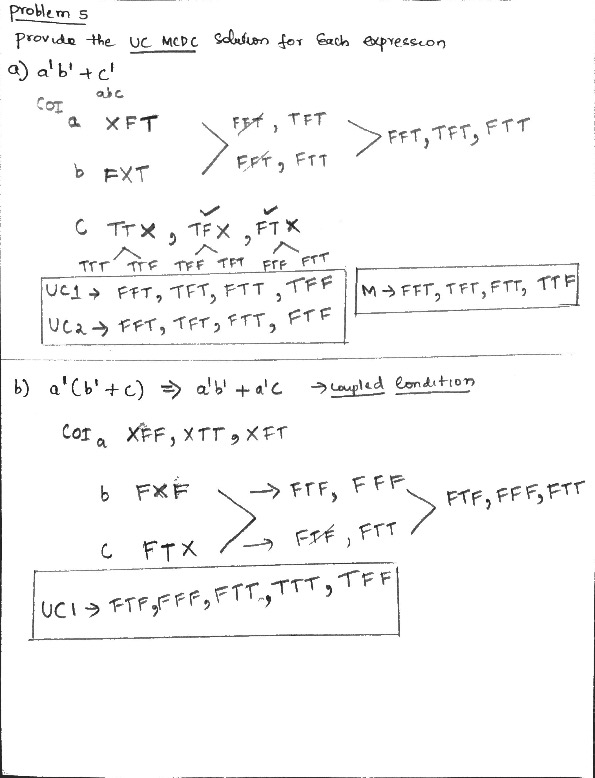 Problem 5
provide the UC MCDC solution for Each expression
a) a'b' + c'
abc
COI a XFT FFT, TFT FFT, TFT, FTT
b FXT FFT, FTT
C TTX, TFX, FTX
TTT TTF TFF TFT FTF FTT
UC1 → FFT, TFT, FTT, TFF M → FFT, TFT, FTT, TTF
UC2 → FFT, TFT, FTT, FTF
b) a'(b' + c) ⇒ a'b' + a'c → Coupled Condition
COI a XFF, XTT, XFT
b FXF → FTF, FFF FTF, FFF, FTT
C FTX → FTF, FTT
UC1 → FTF, FFF, FTT, TTT, TFF